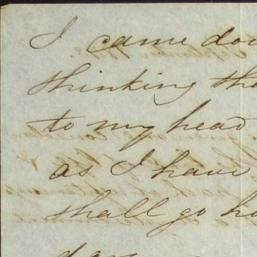 I came dow
thinking tha
to my head
as I have
shall go ho
days